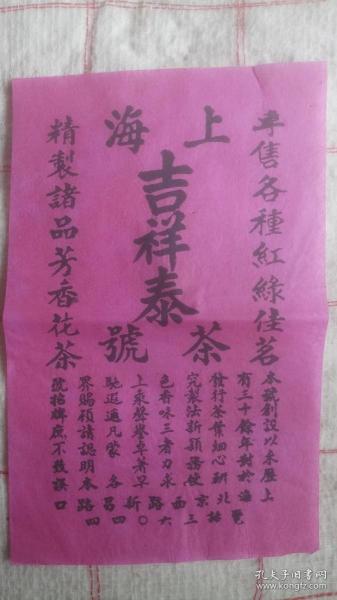 上海
專售各種紅綠佳茗
吉祥泰
茶號
精製諸品芳香花茶
本號創設以來歷
有三十餘年對於
發行茶葉細心研
究製法新穎務使
色香味三者力求
上乘聲譽卓著早
馳遐邇凡蒙 各
界賜顧請認明本
號招牌庶不致誤
上海北京西路新昌路口
電話三六〇四四
孔夫子旧书网